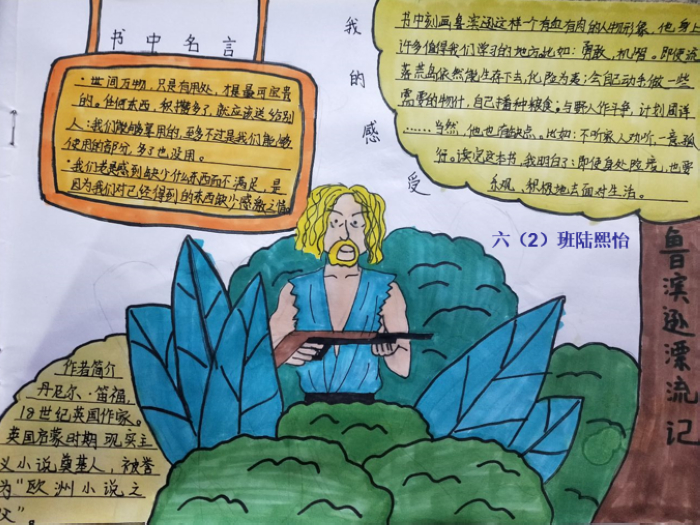 书中名言
·世间万物，只是有用处，才是最可宝贵
的。任何东西，积攒多了，就应该送给别
人；我们能够享用的，至多不过是我们能够
使用的部分，多了也没用。
·我们老是感到缺少什么东西而不满足，是
因为我们对已经得到的东西缺少感激之情。
我的感受
书中刻画鲁宾逊这样一个有血有肉的人物形象，他身上
许多值得我们学习的地方，比如：勇敢，机智。即使流
落荒岛依然能生存下去，化险为夷；会自己动手做一些
需要的物什，自己播种粮食。与野人作斗争，计划周详
……当然，他也有缺点。比如：不听家人劝听，一意孤
行。读完这本书，我明白了：即使身处险境，也要
乐观，积极地去面对生活。
六（2）班陆熙怡
鲁滨逊漂流记
作者简介
丹尼尔·笛福，
18世纪英国作家。
英国启蒙时期现实主
义小说奠基人，被誉
为“欧洲小说之
父”。